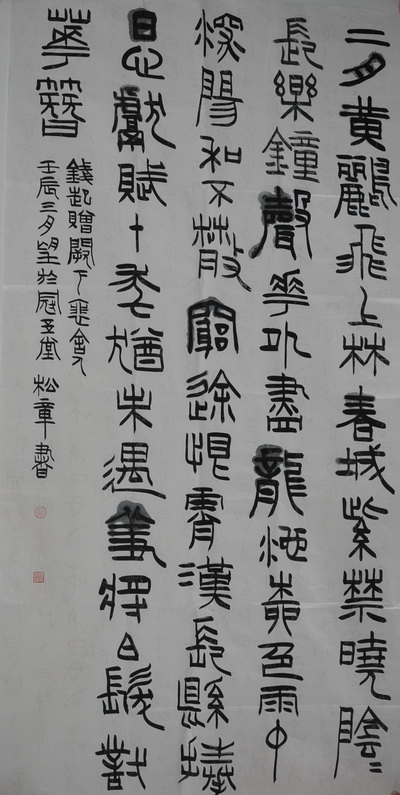 二月黃鸝飛上林春城紫禁曉陰々
長樂鐘聲花外盡龍池柳色雨中
深陽和不散窮途恨霄漢長懸捧
日心獻賦十年猶未遇羞將白髮對
華簪
錢起贈闕下裴舍人
壬辰三月望於冠玉堂 松章書